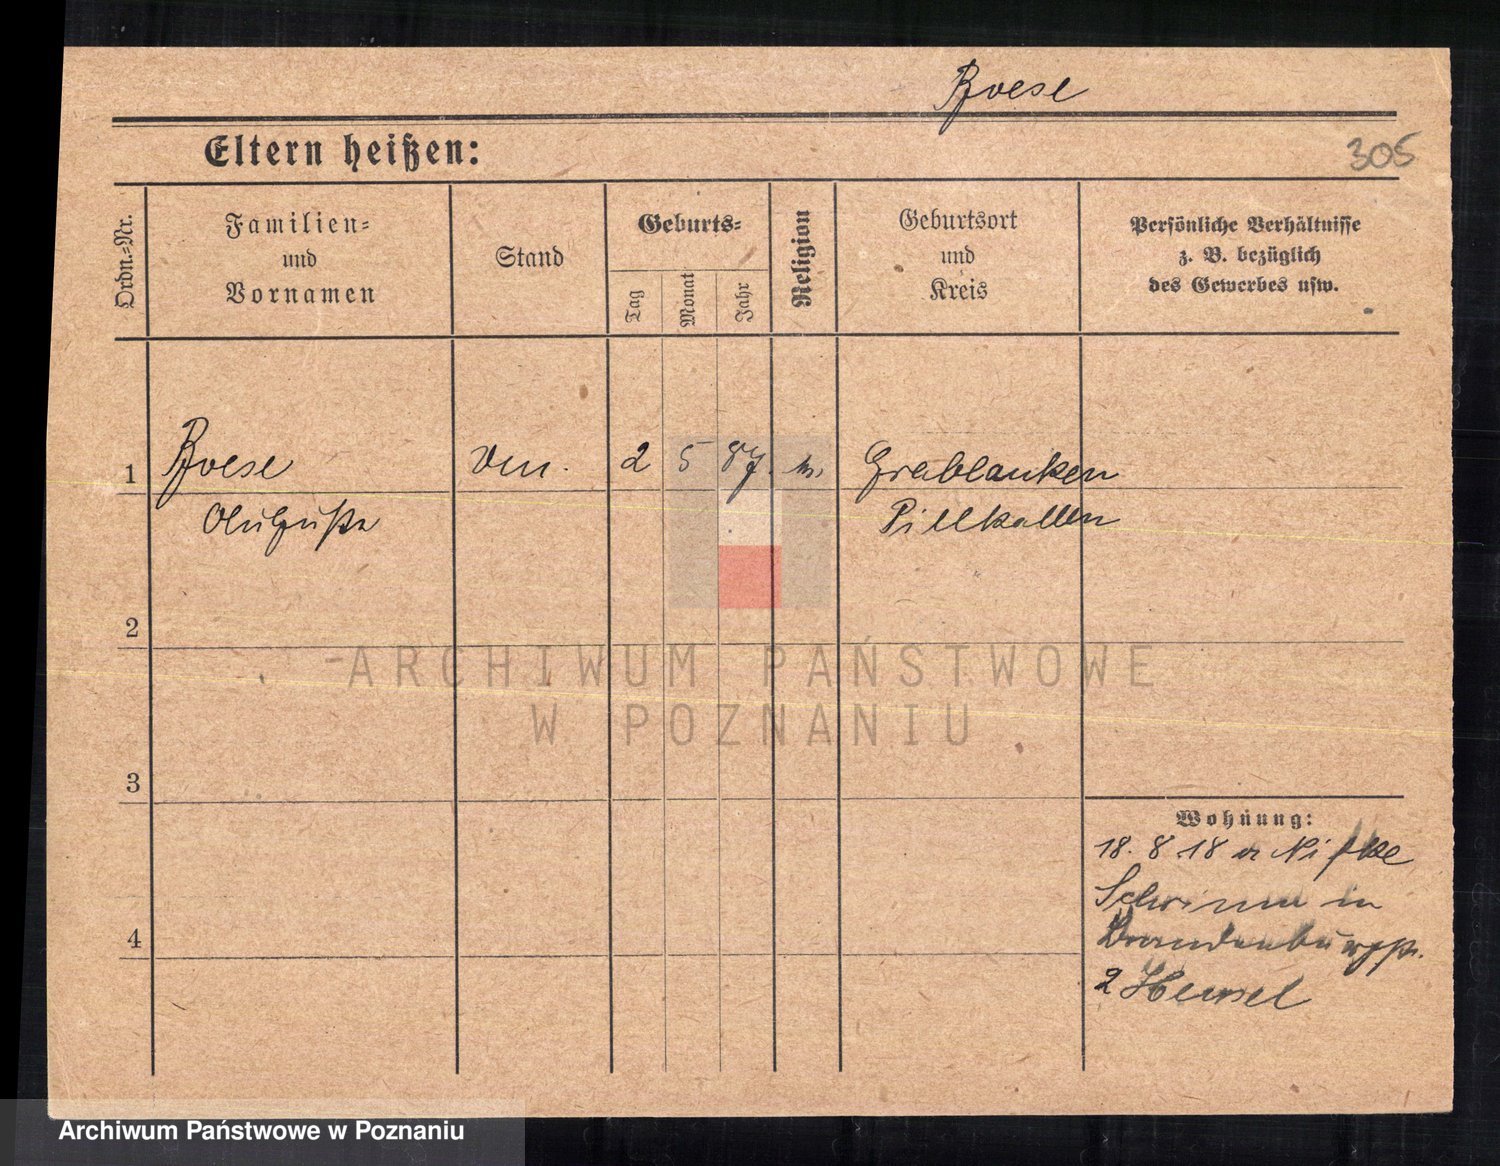 Boese
Eltern heißen:
305
Ordn.=Nr.
Familien=
und
Vornamen
Stand
Geburts=
Tag
Monat
Jahr
Religion
Geburtsort
und
Kreis
Persönliche Verhältnisse
z. B. bezüglich
des Gewerbes usw.
1
Boese
2 5 87.
Grablauken
Auguste
Pillkallen
2
ARCHIWUM PAŃSTWOWE
W POZNANIU
3
Wohnung:
18. 8. 18
in
4
2 Hensel
Archiwum Państwowe w Poznaniu